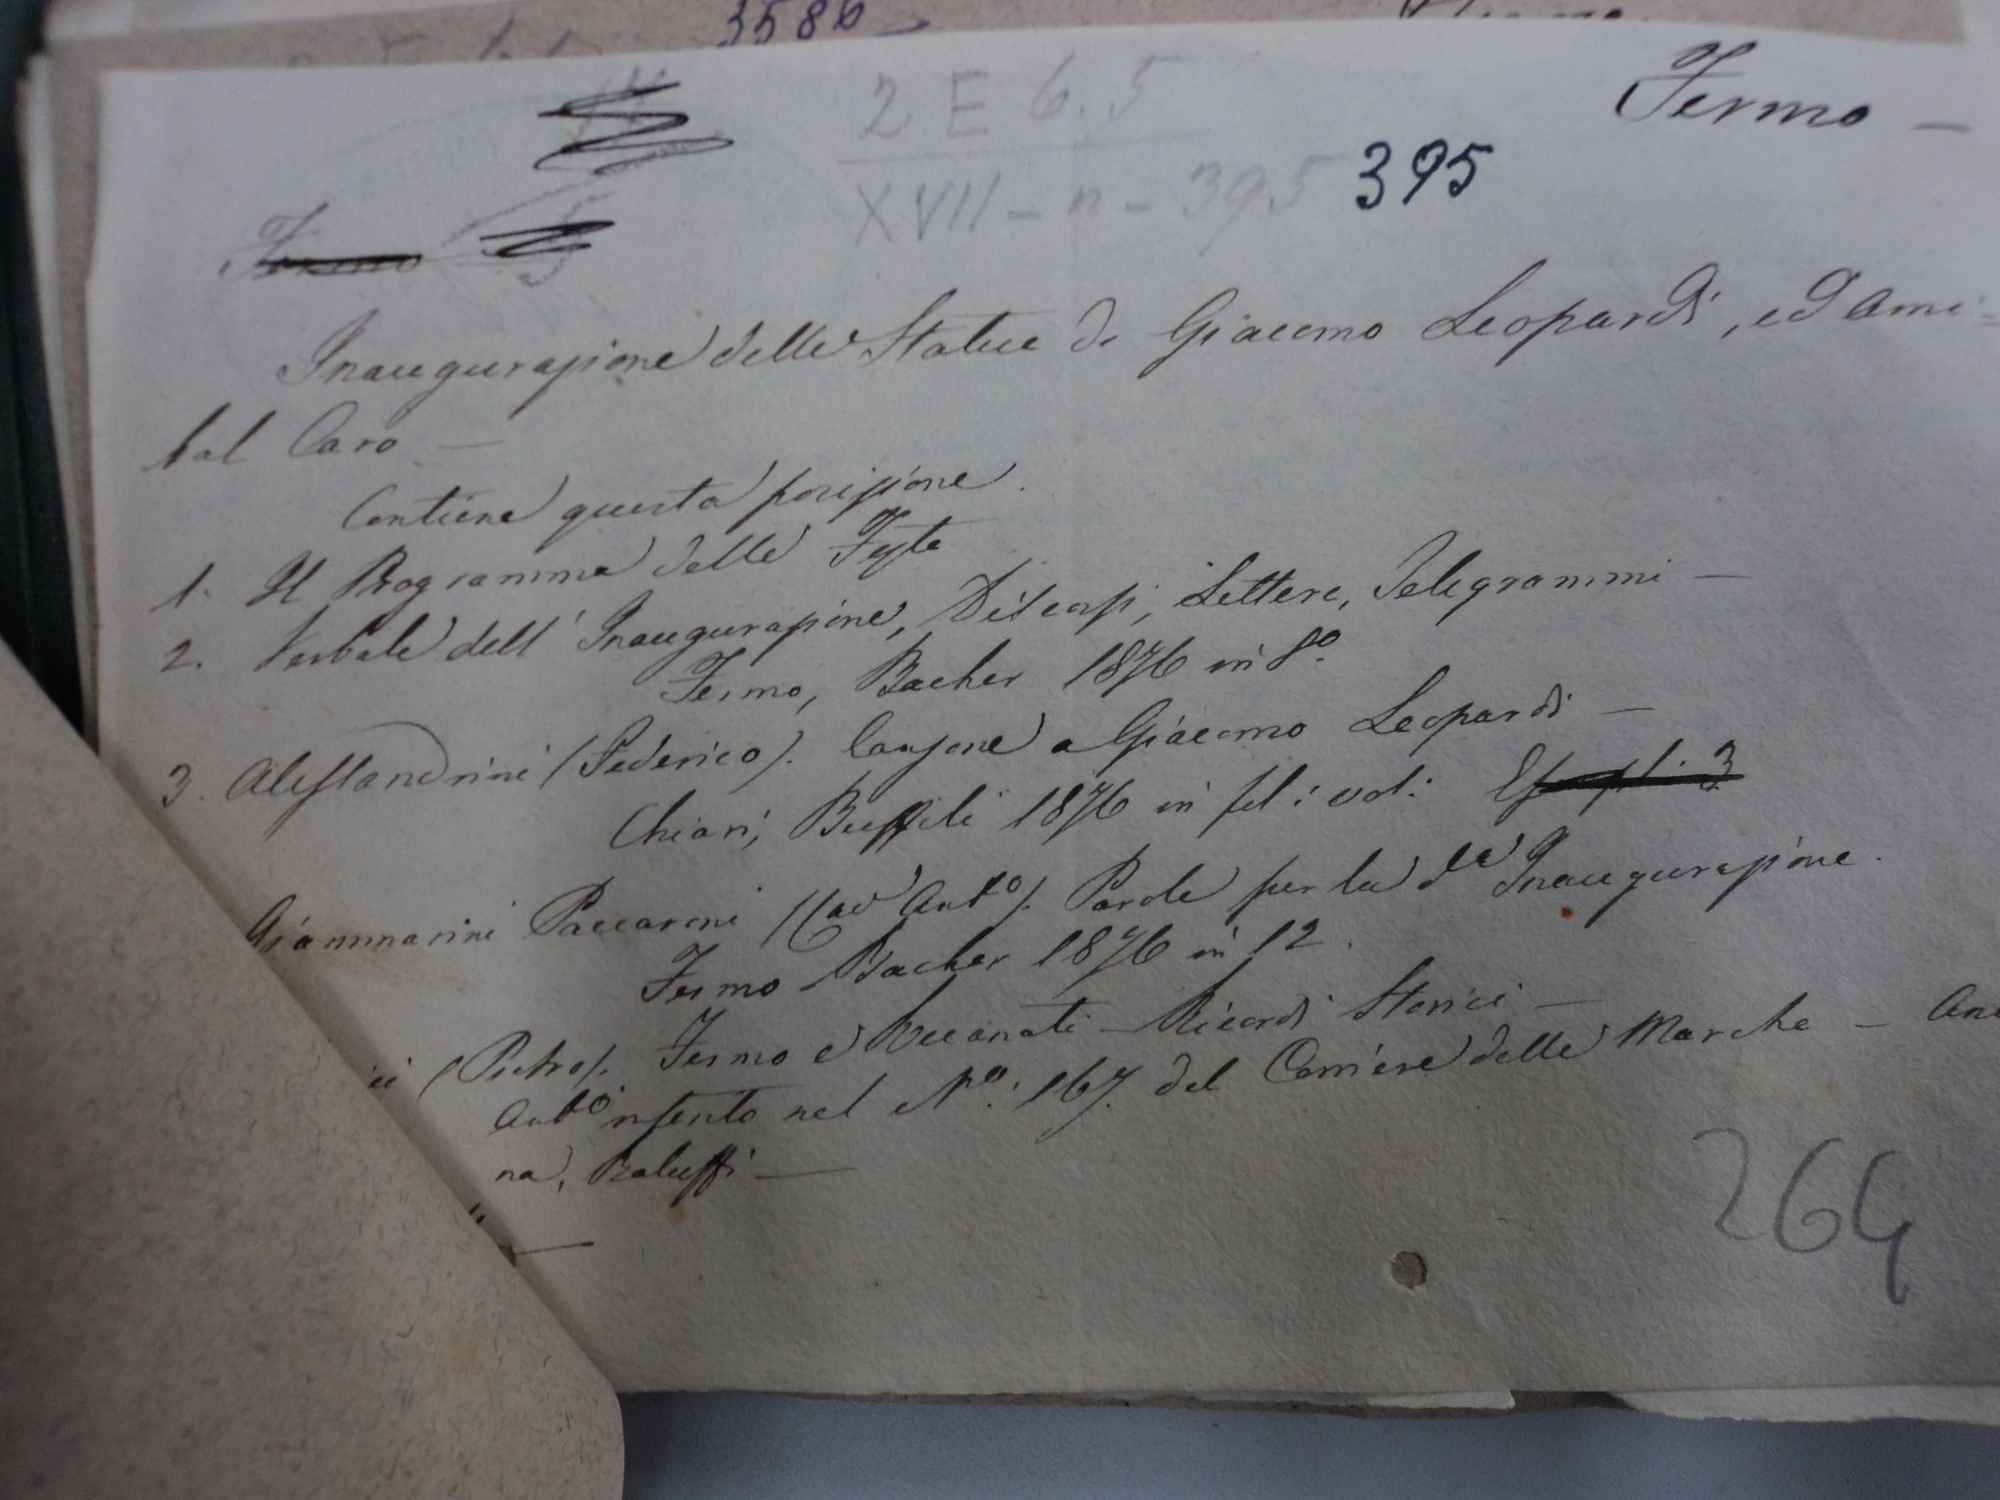 3586
Fermo —
2 E 6.5
XVII - n - 395 395
Fermo
Inaugurazione delle Statue di Giacomo Leopardi, ed Anni=
bal Caro —
Contiene questa posizione.
1. Il Programma delle Feste
2. Verbale dell' Inaugurazione, Discorsi, Lettere, Telegrammi —
Fermo, Bacher 1876 in 8º.
3. Alessandrini (Federico). Canzone a Giacomo Leopardi —
Chiari, Buffoli 1876 in fol: vol: 3
Giammarini Paccaroni (Cav Antº). Parole per la dª Inaugurazione.
Fermo Bacher 1876 in 12.
ci (Pietro). Fermo e Recanati — Ricordi Storici —
Artº inserto nel Nº: 167. del Corriere delle Marche — Anco
na, Baluffi —
264